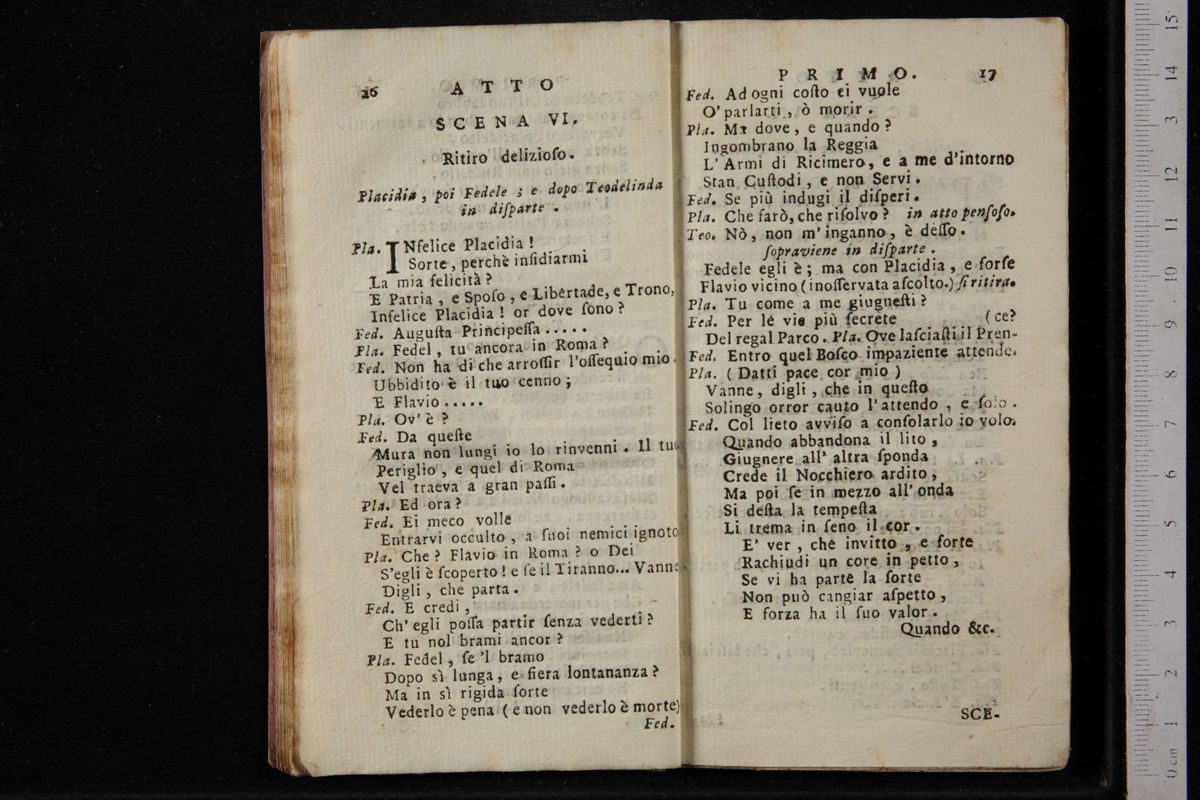 26 ATTO
SCENA VI.
Ritiro delizioſo.
Placidia, poi Fedele; e dopo Teodelinda
in diſparte.
Pla. INfelice Placidia!
Sorte, perchè inſidiarmi
La mia felicità?
E Patria, e Spoſo, e Libertade, e Trono,
Infelice Placidia! or dove ſono?
Fed. Auguſta Principeſſa.....
Pla. Fedel, tu ancora in Roma?
Fed. Non ha di che arroſſir l'oſſequio mio.
Ubbidito è il tuo cenno;
E Flavio.....
Pla. Ov' è?
Fed. Da queſte
Mura non lungi io lo rinvenni. Il tuo
Periglio, e quel di Roma
Vel traeva a gran paſſi.
Pla. Ed ora?
Fed. Ei meco volle
Entrarvi occulto, a ſuoi nemici ignoto
Pla. Che? Flavio in Roma? o Dei
S'egli è ſcoperto! e ſe il Tiranno... Vanne
Digli, che parta.
Fed. E credi,
Ch' egli poſſa partir ſenza vederti?
E tu nol brami ancor?
Pla. Fedel, ſe 'l bramo
Dopo sì lunga, e fiera lontananza?
Ma in sì rigida ſorte
Vederlo è pena (e non vederlo è morte)
Fed.
PRIMO. 17
Fed. Ad ogni coſto ei vuole
O' parlarti, ò morir.
Pla. Ma dove, e quando?
Ingombrano la Reggia
L' Armi di Ricimero, e a me d'intorno
Stan Cuſtodi, e non Servi.
Fed. Se più indugi il diſperi.
Pla. Che farò, che riſolvo? in atto penſoſo.
Teo. Nò, non m' inganno, è deſſo.
ſopraviene in diſparte.
Fedele egli è; ma con Placidia, e forſe
Flavio vicino (inoſſervata aſcolto.) ſi ritira.
Pla. Tu come a me giugneſti?
Fed. Per le vie più ſecrete (ce?
Del regal Parco. Pla. Ove laſciaſti il Pren-
Fed. Entro quel Boſco impaziente attende.
Pla. (Datti pace cor mio)
Vanne, digli, che in queſto
Solingo orror cauto l'attendo, e ſolo.
Fed. Col lieto avviſo a conſolarlo io volo.
Quando abbandona il lito,
Giugnere all' altra ſponda
Crede il Nocchiero ardito,
Ma poi ſe in mezzo all' onda
Si deſta la tempeſta
Li trema in ſeno il cor.
E' ver, che invitto, e forte
Rachiudi un core in petto,
Se vi ha parte la ſorte
Non può cangiar aſpetto,
E forza ha il ſuo valor.
Quando &c.
SCE-
0 cm 1 2 3 4 5 6 7 8 9 10 11 12 3 14 15